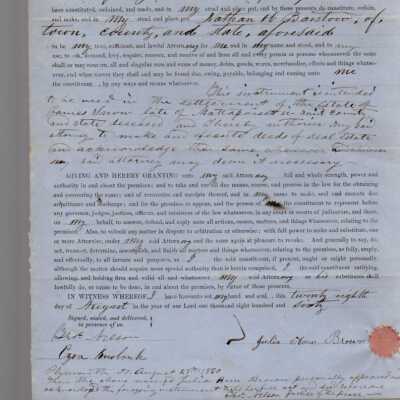 constituted, ordained, and made, and in my stead and place put, and by these presents do constitute, ordain,
and make, and in my stead and place put, Nathan H. Barstow, of,
town, county, and state, aforesaid
to be my true, sufficient, and lawful Attorney for me and in my name and stead, and to my
use, to ask, demand, levy, require, recover, and receive of and from all and every person or persons whomsoever the same
shall or may concern, all and singular sum and sums of money, debts, goods, wares, merchandise, effects and things whatsoever,
and whatsoever and wheresoever they shall and may be found due, owing, payable, belonging and coming unto me
the constituent, by any ways and means whatsoever.
This instrument is intended
to be used in the settlement of the Estate of
James late of Mattapoisett in said county
and state deceased and I herein authorize my said
attorney to make and execute deeds of Real Estate
and acknowledge the same whenever
my said attorney may deem it necessary
GIVING AND HEREBY GRANTING unto my said Attorney full and whole strength, power and
authority in and about the premises; and to take and use all due means, course, and process in the law for the obtaining
and recovering the same; and of recoveries and receipts thereof, and in my name to make, seal and execute due
acquittance and discharge; and for the premises to appear, and the person of me the constituent to represent before
any governor, judges, justices, officers, and ministers of the law whatsoever, in any court or courts of judicature, and there,
on my behalf, to answer, defend, and reply unto all actions, causes, matters, and things whatsoever, relating to the
premises. Also, to submit any matter in dispute to arbitration or otherwise; with full power to make and substitute, one
or more Attornies, under my said Attorney and the same again at pleasure to revoke. And generally to say, do,
act, transact, determine, accomplish, and finish all matters and things whatsoever, relating to the premises, as fully, amply,
and effectually, to all intents and purposes, as I the said constituent, if present, ought or might personally,
although the matter should require more special authority than is herein comprised, I the said constituent ratifying,
allowing, and holding firm and valid all and whatsoever my said Attorney or his substitutes shall
lawfully do, or cause to be done, in and about the premises, by virtue of these presents.
IN WITNESS WHEREOF, I have hereunto set my hand and seal, this twenty eighth
day of August in the year of our Lord one thousand eight hundred and sixty
Signed, sealed, and delivered,
in presence of us
Nelson
Julia Ann Brown
Ezra
Plymouth, August 28th 1860
Then the above named Julia Ann Brown personally appeared and
acknowledged the foregoing instrument to be her free act and deed before me
Nelson Justice of the peace